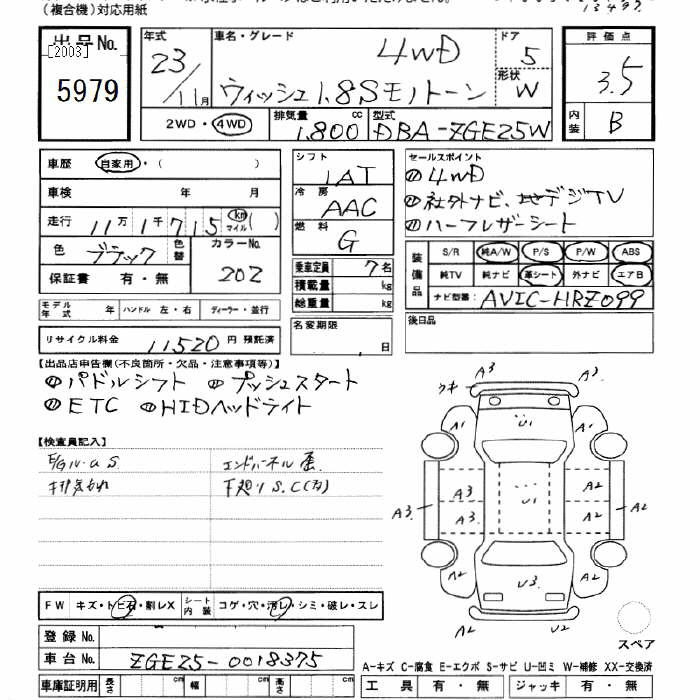 (複合機)対応用紙
出品No.
[2003]
5979
年式
23/11月
車名・グレード
4WD
ウィッシュ1.8Sモノトーン
ドア
5
形状
W
評価点
3.5
内装
B
2WD・4WD
排気量
1.800 cc
型式
DBA-ZGE25W
車歴
自家用・( )
車検 年 月
走行 11万1千715 km マイル( )
色 ブラック 色替
カラーNo. 202
保証書 有・無
モデル年式 年 ハンドル 左・右 ディーラー・並行
リサイクル料金 11520 円 預託済
シフト
IAT
冷房
AAC
燃料
G
乗車定員 7名
積載量 kg
総重量 kg
名変期限
日
セールスポイント
① 4WD
② 社外ナビ、地デジTV
③ ハーフレザーシート
装備品
S/R 純A/W P/S P/W ABS
純TV 純ナビ 革シート 外ナビ エアB
ナビ型番 AVIC-HRZ099
後日品
【出品店申告欄(不良箇所・欠品・注意事項等)】
パドルシフト プッシュスタート
ETC HIDヘッドライト
【検査員記入】
エンドパネル歪
下廻りS.C(有)
FW キズ・トビ石・割レX シート内装 コゲ・穴・汚レ・シミ・破レ・スレ
登録No.
車台No. ZGE25-0018375
車庫証明用 長さ cm 幅 cm 高さ cm
A3
A3
U1
A2
A1
A3
A3
A3
U1
A2
A2
A2
A2
A2
U3
A2
A2
スペア
A-キズ C-腐食 E-エクボ S-サビ U-凹ミ W-補修 XX-交換済
工具 有・無 ジャッキ 有・無